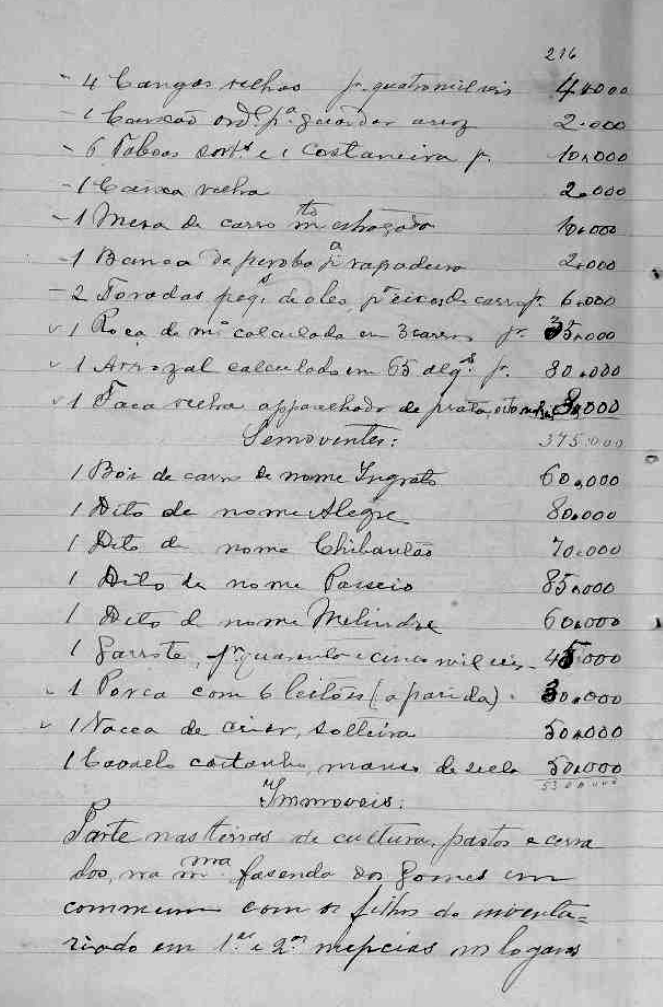 216
- 4 Cangas velhas pr. quatro mil reis 4.000
- 1 Caixão ord.º p.ª guardar arroz 2.000
- 6 Taboas sort.s e 1 costaneira pr. 10.000
- 1 Canca velha 2.000
- 1 Mesa de carro mto estragada 10.000
- 1 Banca de peroba pª rapadura 2.000
- 2 Toradas peqs. de oleo, pª eixos de carro pr. 6.000
v 1 Roça de mº calculada em 3 carros pr. 35.000
v 1 Arrozal calculado em 65 alqs. pr. 80.000
v 1 Faca velha apparelhada de prata, oito mil reis 8.000
Semoventes: 375.000
1 Boi de carro de nome Ingrato 60.000
1 Dito de nome Alegre 80.000
1 Dito de nome Chibantão 70.000
1 Dito de nome Passeio 85.000
1 Dito de nome Melindre 60.000
1 Garrote, pr. quarenta e cinco mil reis - 45.000
v 1 Porca com 6 leitões (a parida) - 30.000
v 1 Vacca de criar, solteira 50.000
1 Cavallo castanho, manso de sella 50.000
530.000
Immoveis:
Parte nas terras de cultura, pastos e cerra
dos, na mma fasenda dos Gomes em
commum com os filhos do inventa=
riado em 1as e 2as nupcias nos logares